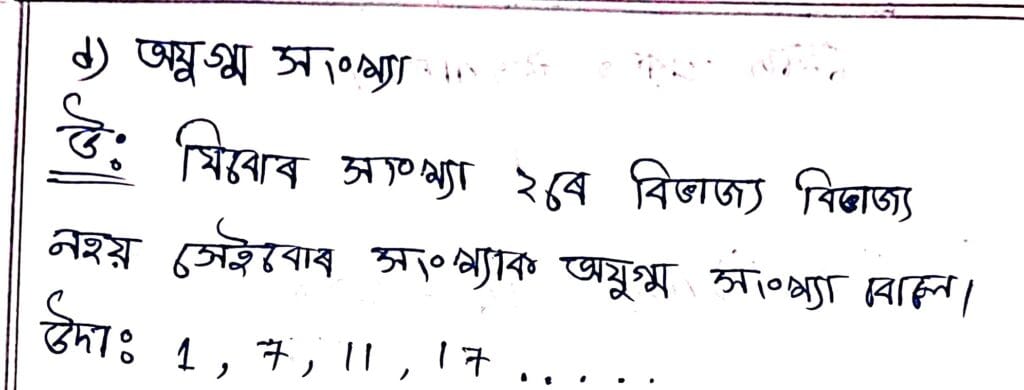 d) অযুগ্ম সংখ্যা
উ: যিবোৰ সংখ্যা ২ৰে বিভাজ্য বিভাজ্য
নহয় সেইবোৰ সংখ্যাক অযুগ্ম সংখ্যা বোলে।
উদা: 1, 7, 11, 17 .....